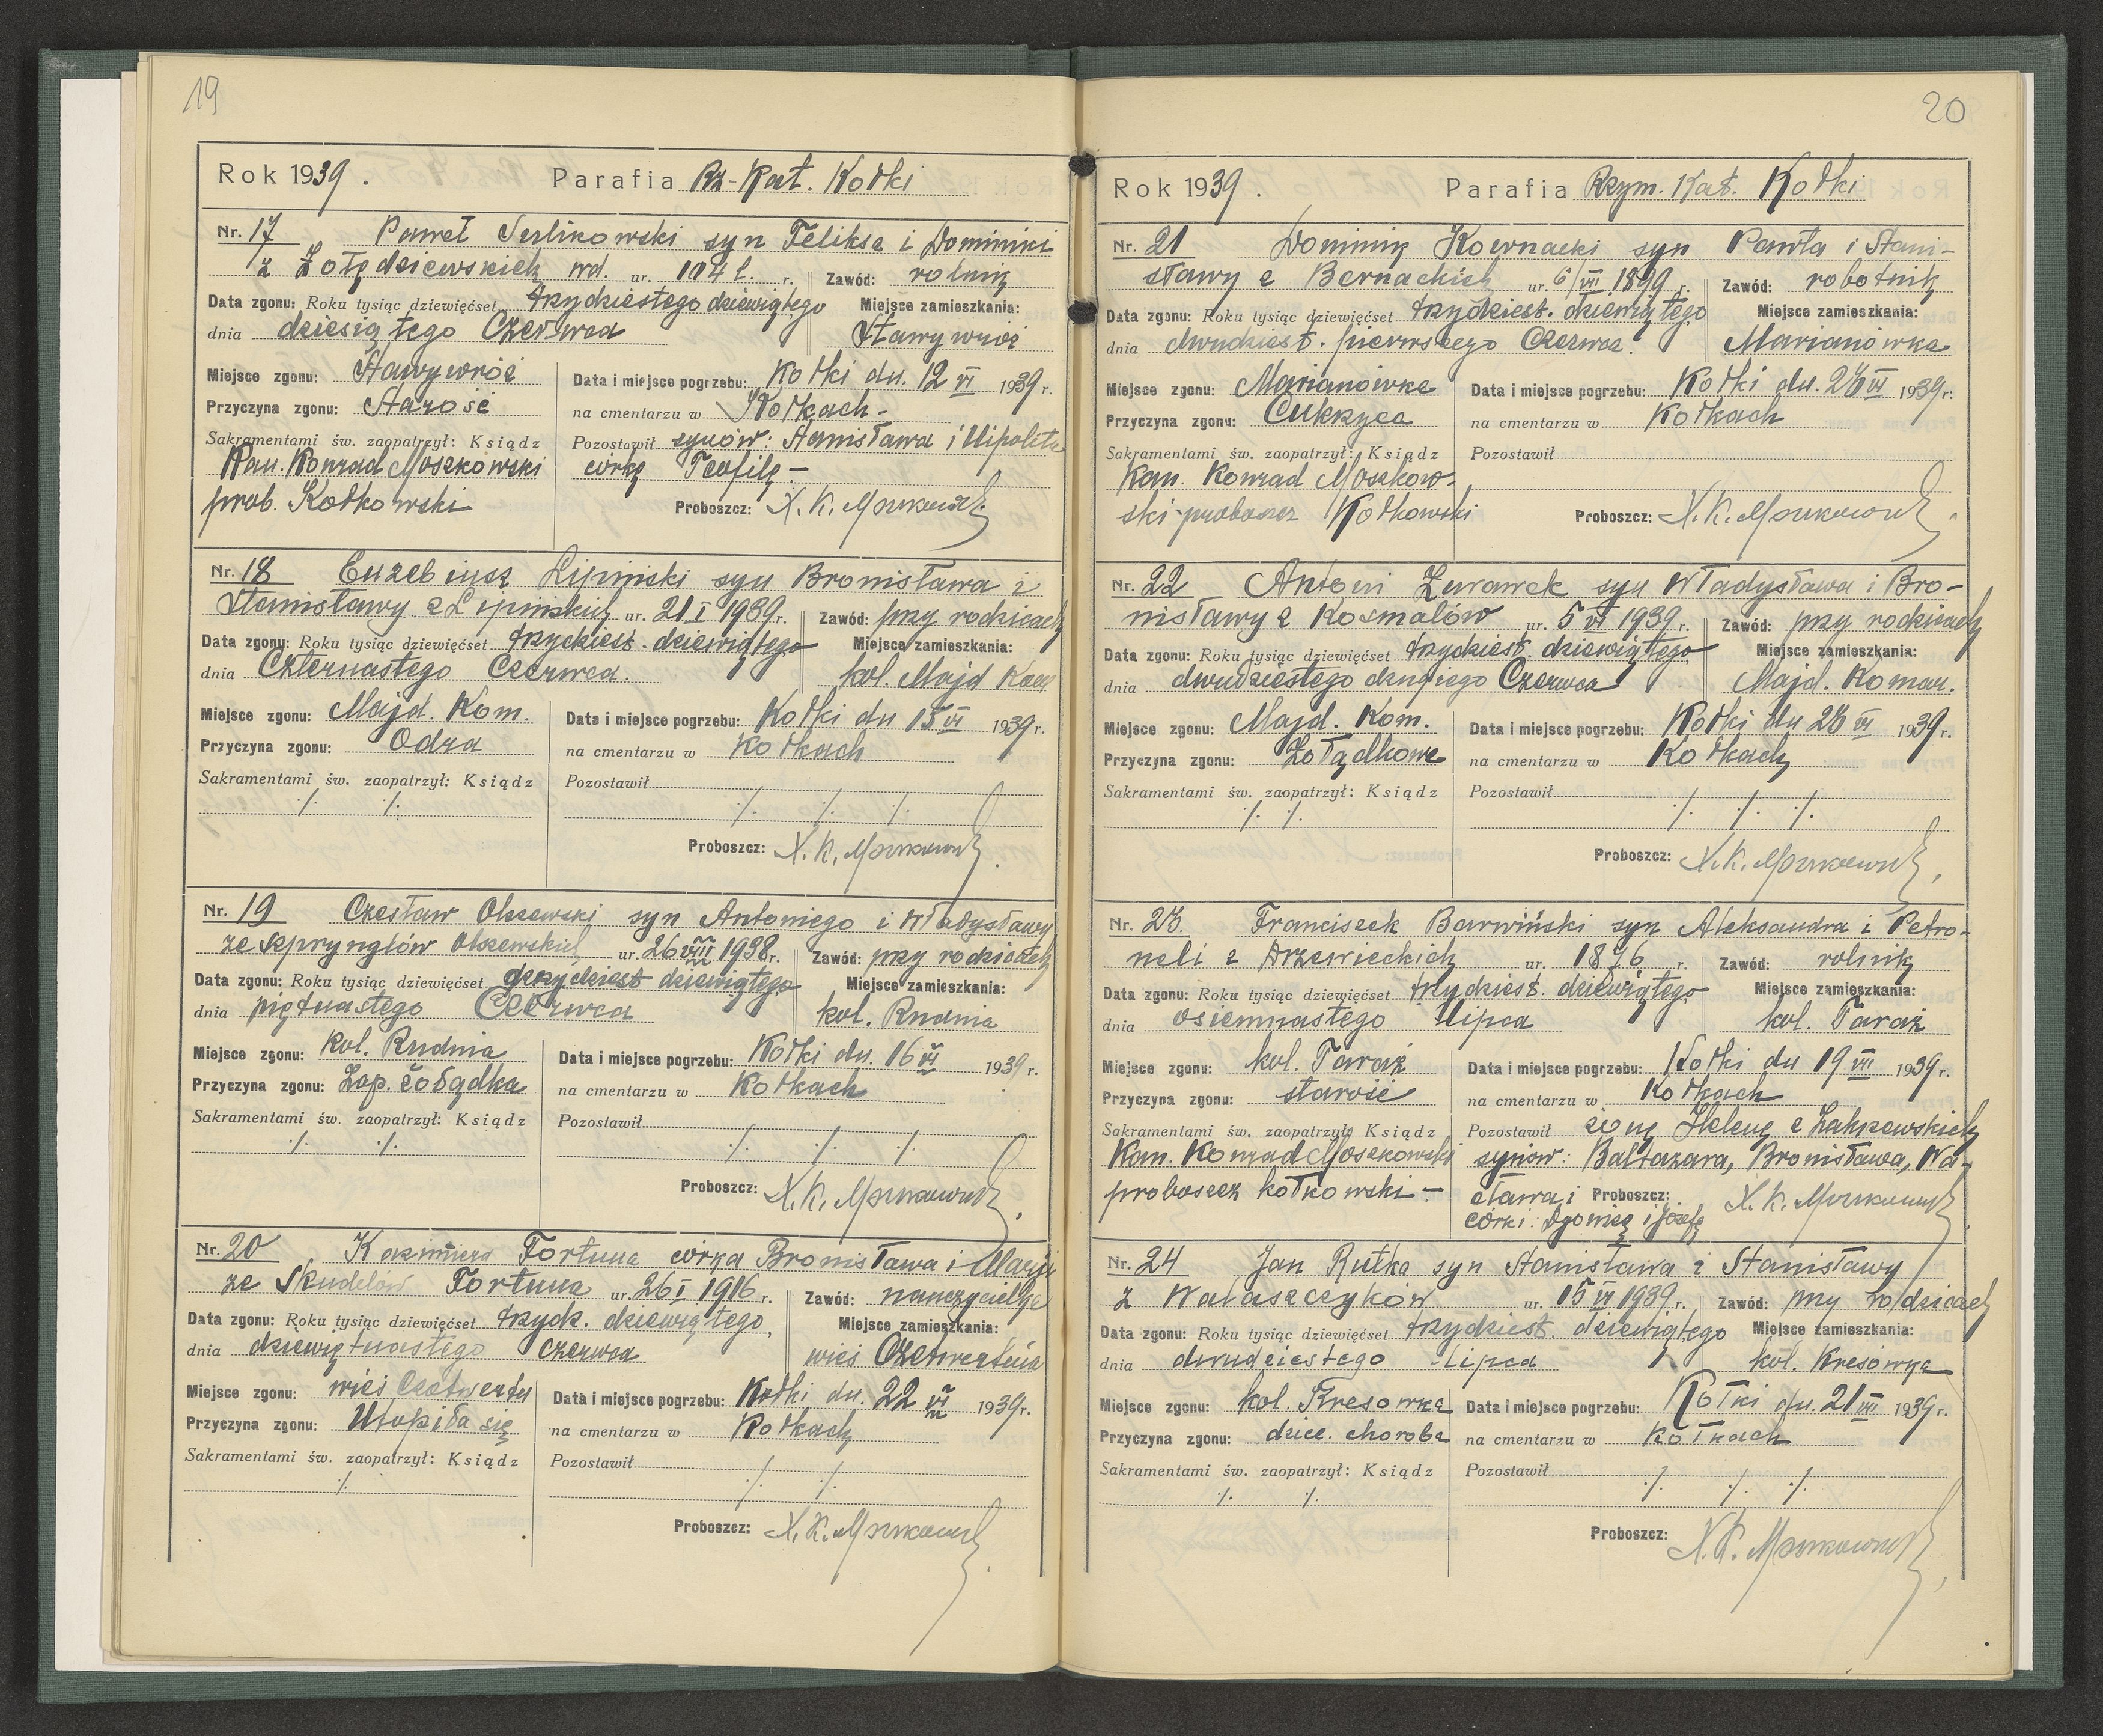 19
Rok 1939. Parafia Rz-Kat. Kołki
Nr. 17 Paweł Surlikowski syn Feliksa i Dominiki
z Żołędziewskich wd. ur. 104 l. r. Zawód: rolnik
Data zgonu: Roku tysiąc dziewięćset trzydziestego dziewiątego Miejsce zamieszkania:
dnia dziesiątego Czerwca
Miejsce zgonu: Data i miejsce pogrzebu: Kołki dn. 12 VI 1939 r.
Przyczyna zgonu: Starość na cmentarzu w Kołkach -
Sakramentami św. zaopatrzył: Ksiądz Pozostawił synów: Stanisława i Hipolita
Kan. Konrad Moszkowski córkę Teofilę -
prob. Kołkowski Proboszcz: X. K. Moszkowski
Nr. 18 Euzebiusz Lipiński syn Bronisława i
Stanisławy z Lipińskich ur. 21 I 1939 r. Zawód: przy rodzicach
Data zgonu: Roku tysiąc dziewięćset trzydziest. dziewiątego Miejsce zamieszkania:
dnia Czternastego Czerwca. kol. Majd Kom
Miejsce zgonu: Majd. Kom. Data i miejsce pogrzebu: Kołki dn 15 VI 1939 r.
Przyczyna zgonu: Odra na cmentarzu w Kołkach
Sakramentami św. zaopatrzył: Ksiądz Pozostawił
·/· ·/· ·/· ·/· ·/·
Proboszcz: X. K. Moszkowski
Nr. 19 Czesław Olszewski syn Antoniego i Władysławy
ze Szpryngłów Olszewskich ur. 26 VIII 1938 r. Zawód: przy rodzicach
Data zgonu: Roku tysiąc dziewięćset trzydziest dziewiątego Miejsce zamieszkania:
dnia piętnastego Czerwca kol. Rudnia
Miejsce zgonu: kol. Rudnia Data i miejsce pogrzebu: Kołki dn. 16 VI 1939 r.
Przyczyna zgonu: Zap. żołądka na cmentarzu w Kołkach
Sakramentami św. zaopatrzył: Ksiądz Pozostawił
·/· ·/· ·/· ·/· ·/·
Proboszcz: X. K. Moszkowski
Nr. 20 Kazimiera Fortuna córka Bronisława i Marii
ze Skudelów Fortuna ur. 26 I 1916 r. Zawód: nauczycielka
Data zgonu: Roku tysiąc dziewięćset trzydz. dziewiątego, Miejsce zamieszkania:
dnia dziewiętnastego czerwca wieś Czetwertnia
Miejsce zgonu: wieś Data i miejsce pogrzebu: Kołki dn. 22 VI 1939 r.
Przyczyna zgonu: Utopiła się na cmentarzu w Kołkach
Sakramentami św. zaopatrzył: Ksiądz Pozostawił
·/· ·/· ·/·
Proboszcz: X. K. Moszkowski
20
Rok 1939. Parafia Rzym. Kat. Kołki
Nr. 21 Dominik syn Pawła i Stani-
sławy z Bernackich ur. 6/VII 1899 r. Zawód: robotnik
Data zgonu: Roku tysiąc dziewięćset trzydziest. dziewiątego Miejsce zamieszkania:
dnia dwudziest. pierwszego Czerwca. Marianówka
Miejsce zgonu: Marianówka Data i miejsce pogrzebu: Kołki dn. 23 VI 1939 r.
Przyczyna zgonu: Cukrzyca na cmentarzu w Kołkach
Sakramentami św. zaopatrzył: Ksiądz Pozostawił
Kan. Konrad Moszkow-
ski-proboszcz Kołkowski Proboszcz: X. K. Moszkowski
Nr. 22 Antoni Żurawek syn Władysława i Bro-
nisławy z Kosmalów ur. 5 VI 1939 r. Zawód: przy rodzicach
Data zgonu: Roku tysiąc dziewięćset trzydziest. dziewiątego Miejsce zamieszkania:
dnia dwudziestego drugiego Czerwca Majd. Komar.
Miejsce zgonu: Majd. Kom. Data i miejsce pogrzebu: Kołki dn 23 VI 1939 r.
Przyczyna zgonu: Żołądkowa na cmentarzu w Kołkach
Sakramentami św. zaopatrzył: Ksiądz Pozostawił
·/· ·/· ·/· ·/· ·/·
Proboszcz: X. K. Moszkowski
Nr. 23. Franciszek Barwiński syn Aleksandra i Petro-
neli z Drzewieckich ur. 1876 r. Zawód: rolnik
Data zgonu: Roku tysiąc dziewięćset trzydziest. dziewiątego Miejsce zamieszkania:
dnia osiemnastego Lipca kol. Taraż
Miejsce zgonu: kol. Taraż Data i miejsce pogrzebu: Kołki dn 19 VII 1939 r.
Przyczyna zgonu: starość na cmentarzu w Kołkach
Sakramentami św. zaopatrzył: Ksiądz Pozostawił żonę Helenę z Zakrzewskich
Kan. Konrad Moszkowski synów: Baltazara, Bronisława, Wa-
proboszcz kołkowski - cława i Proboszcz: X. K. Moszkowski
córki: i Józefę
Nr. 24 Jan Rutka syn Stanisława i Stanisławy
z Walaszczyków ur. 15 VI 1939 r. Zawód: przy rodzicach
Data zgonu: Roku tysiąc dziewięćset trzydziest. dziewiątego Miejsce zamieszkania:
dnia dwudziestego Lipca kol. Kresówka
Miejsce zgonu: kol. Kresówka Data i miejsce pogrzebu: Kołki dn. 21 VII 1939 r.
Przyczyna zgonu: dziec. choroba na cmentarzu w Kołkach
Sakramentami św. zaopatrzył: Ksiądz Pozostawił
·/· ·/· ·/· ·/· ·/·
Proboszcz: X. K. Moszkowski